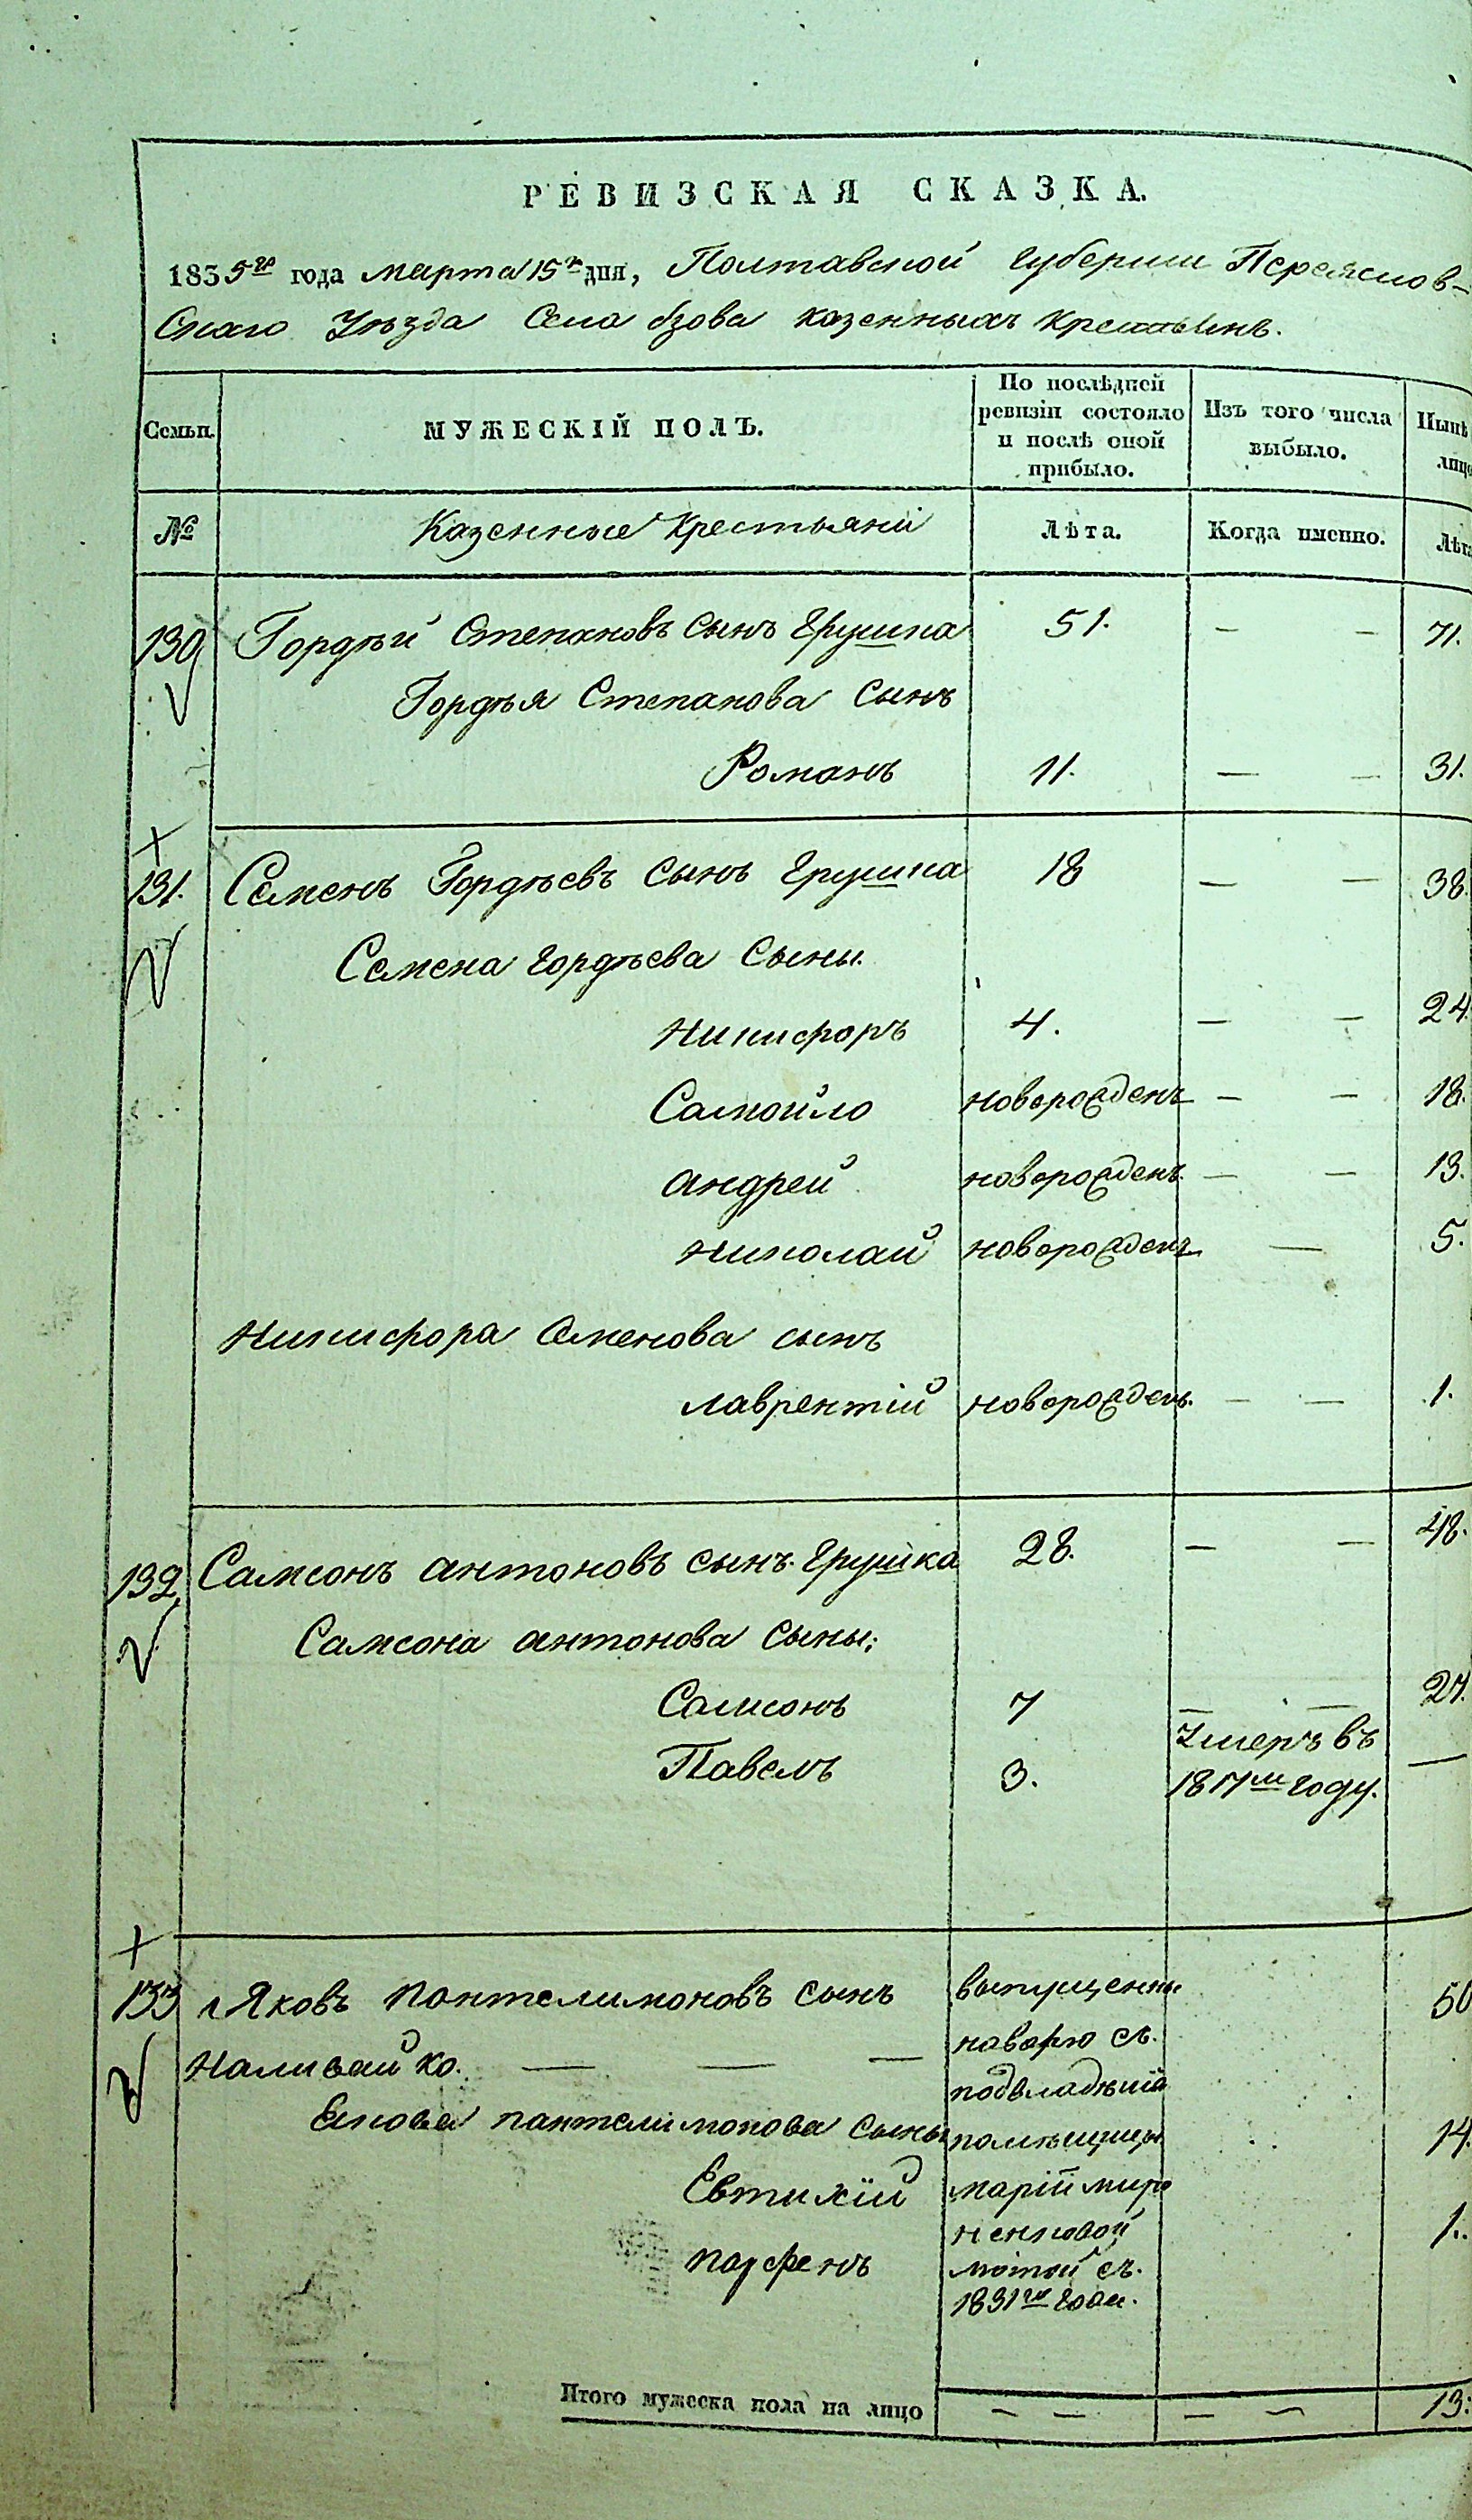 РЕВИЗСКАЯ СКАЗКА.
1835го года марта 15го дня, Полтавской губернии Переяслов-
скаго уѣзда села бзова казенныхъ крестьянъ.
Семьи. МУЖЕСКІЙ ПОЛЪ. По послѣдней ревизіи состояло и послѣ оной прибыло. Изъ того числа выбыло. Нынѣ лицо
№ Казенные крестьяни Лѣта. Когда именно. Лѣта
130 Гордѣй Степановъ сынъ Грушка 51. — — 71.
Гордѣя Степанова сынъ
Романъ 11. — — 31.
131. Семенъ Гордѣевъ сынъ Грушка 18 — — 38.
Семена Гордѣева сыны.
Никифоръ 4. — — 24.
Самойло новорожденъ — — 18.
андрей новорожденъ. — — 13.
николай новорожденъ — 5.
Никифора Семенова сынъ
лаврентій новорожденъ. — — 1.
132 Самсонъ антоновъ сынъ Грушка 28. — — 48.
Самсона антонова сыны:
Самсонъ 7 — — 27.
Павелъ 3. умеръ въ —
1817м году.
133 Яковъ пантелимоновъ сынъ 50
Наливайко. — — —
Якова пантелимонова сыны 14.
Евтихій
парфенъ 1.
выпущенны
наволю съ.
подвладѣнія
помѣщицы
марій миро
ненковой
съ.
1831го года.
Итого мужеска пола на лицо — — — — 13: